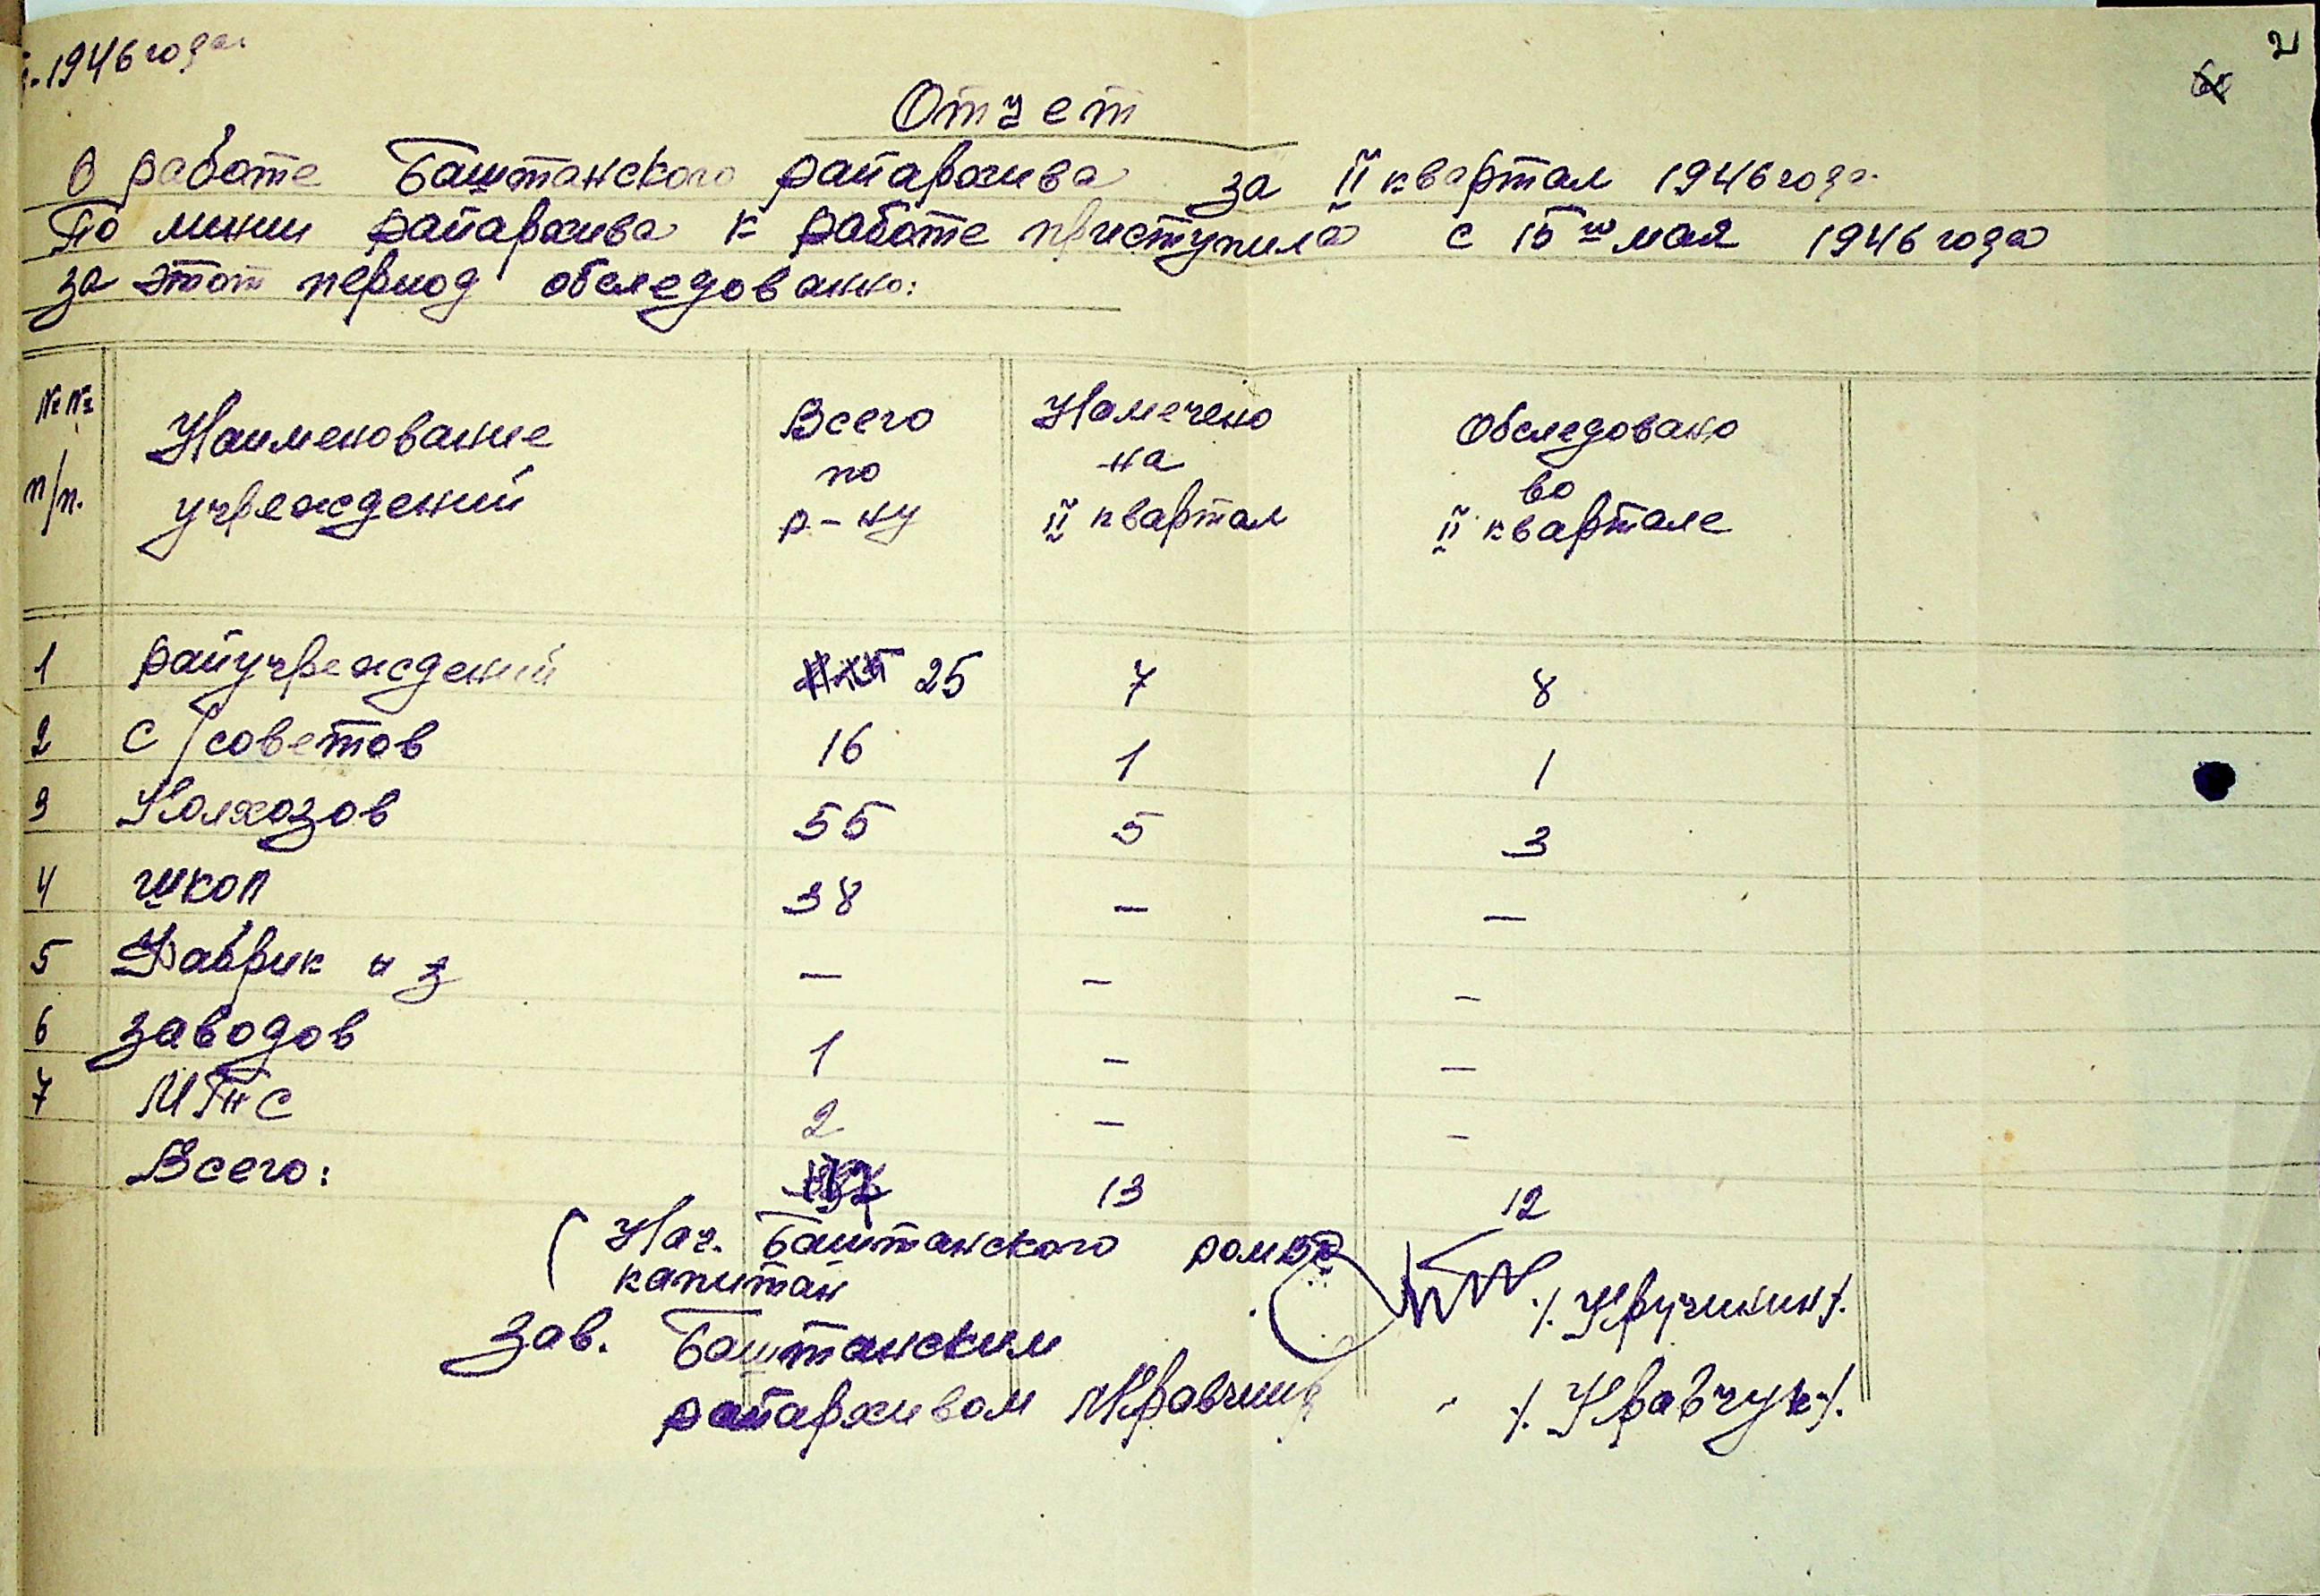 1946 года
2
Отчет
О работе Баштанского райархива за II квартал 1946 года
По линии райархива к работе приступила с 15го мая 1946 года
за этот период обследовано:
№№ п/п.
Наименование учреждений
Всего по р-ну
Намечено на II квартал
Обследовано во II квартале
1 райучреждений 25 7 8
2 с/советов 16 1 1
3 Колхозов 55 5 3
4 школ 38 — —
5 Фабрик и з — — —
6 заводов 1 — —
7 МТС 2 — —
Всего: 13 12
Нач. Баштанского РОМВД
капитан /Кручинин/.
Зав. Баштанским
райархивом /Кравчук/.